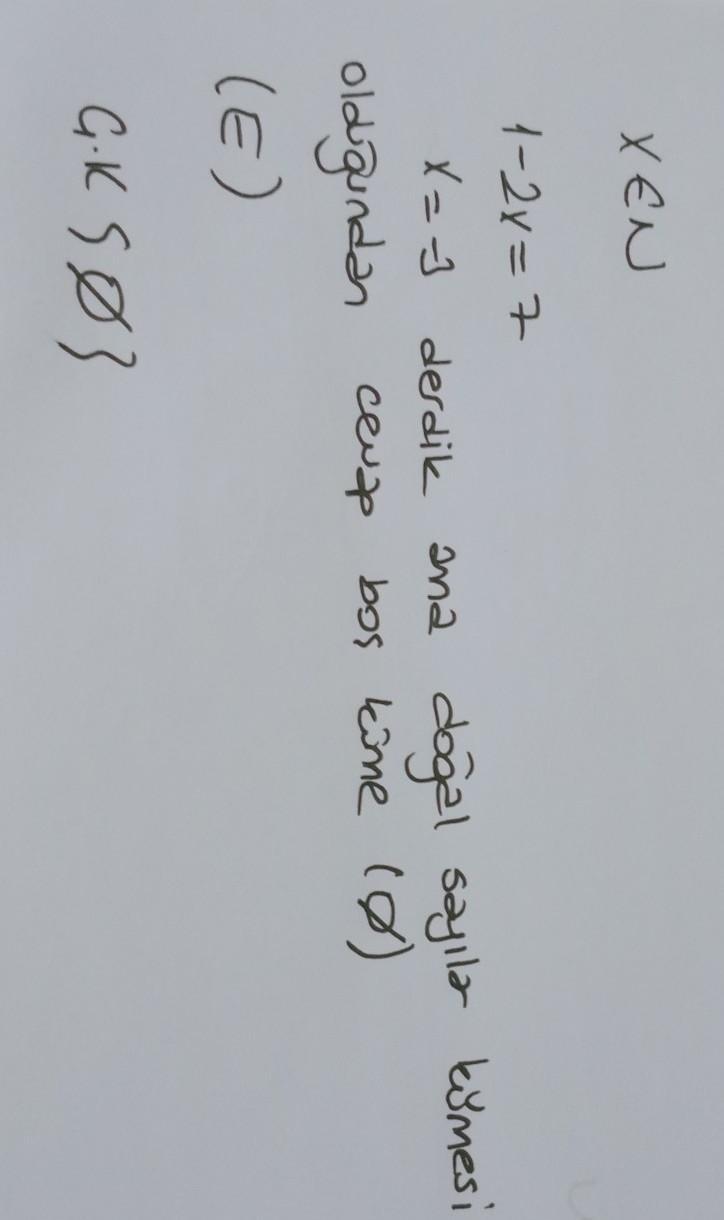 X ∈ N
1-2x=7
x=-3 derdik ama doğal sayılar kümesi
olduğundan cevap boş küme (Ø)
(E)
Ç.K { Ø }